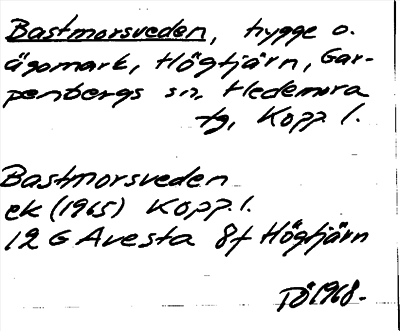 Bastmorsveden, hygge o.
ägomark, Högtjärn, Gar-
penbergs sn, Hedemora
tg, Kopp. l.
Bastmorsveden
ek (1965) Kopp. l.
12 G Avesta 8f Högtjärn
PÖ 1968.